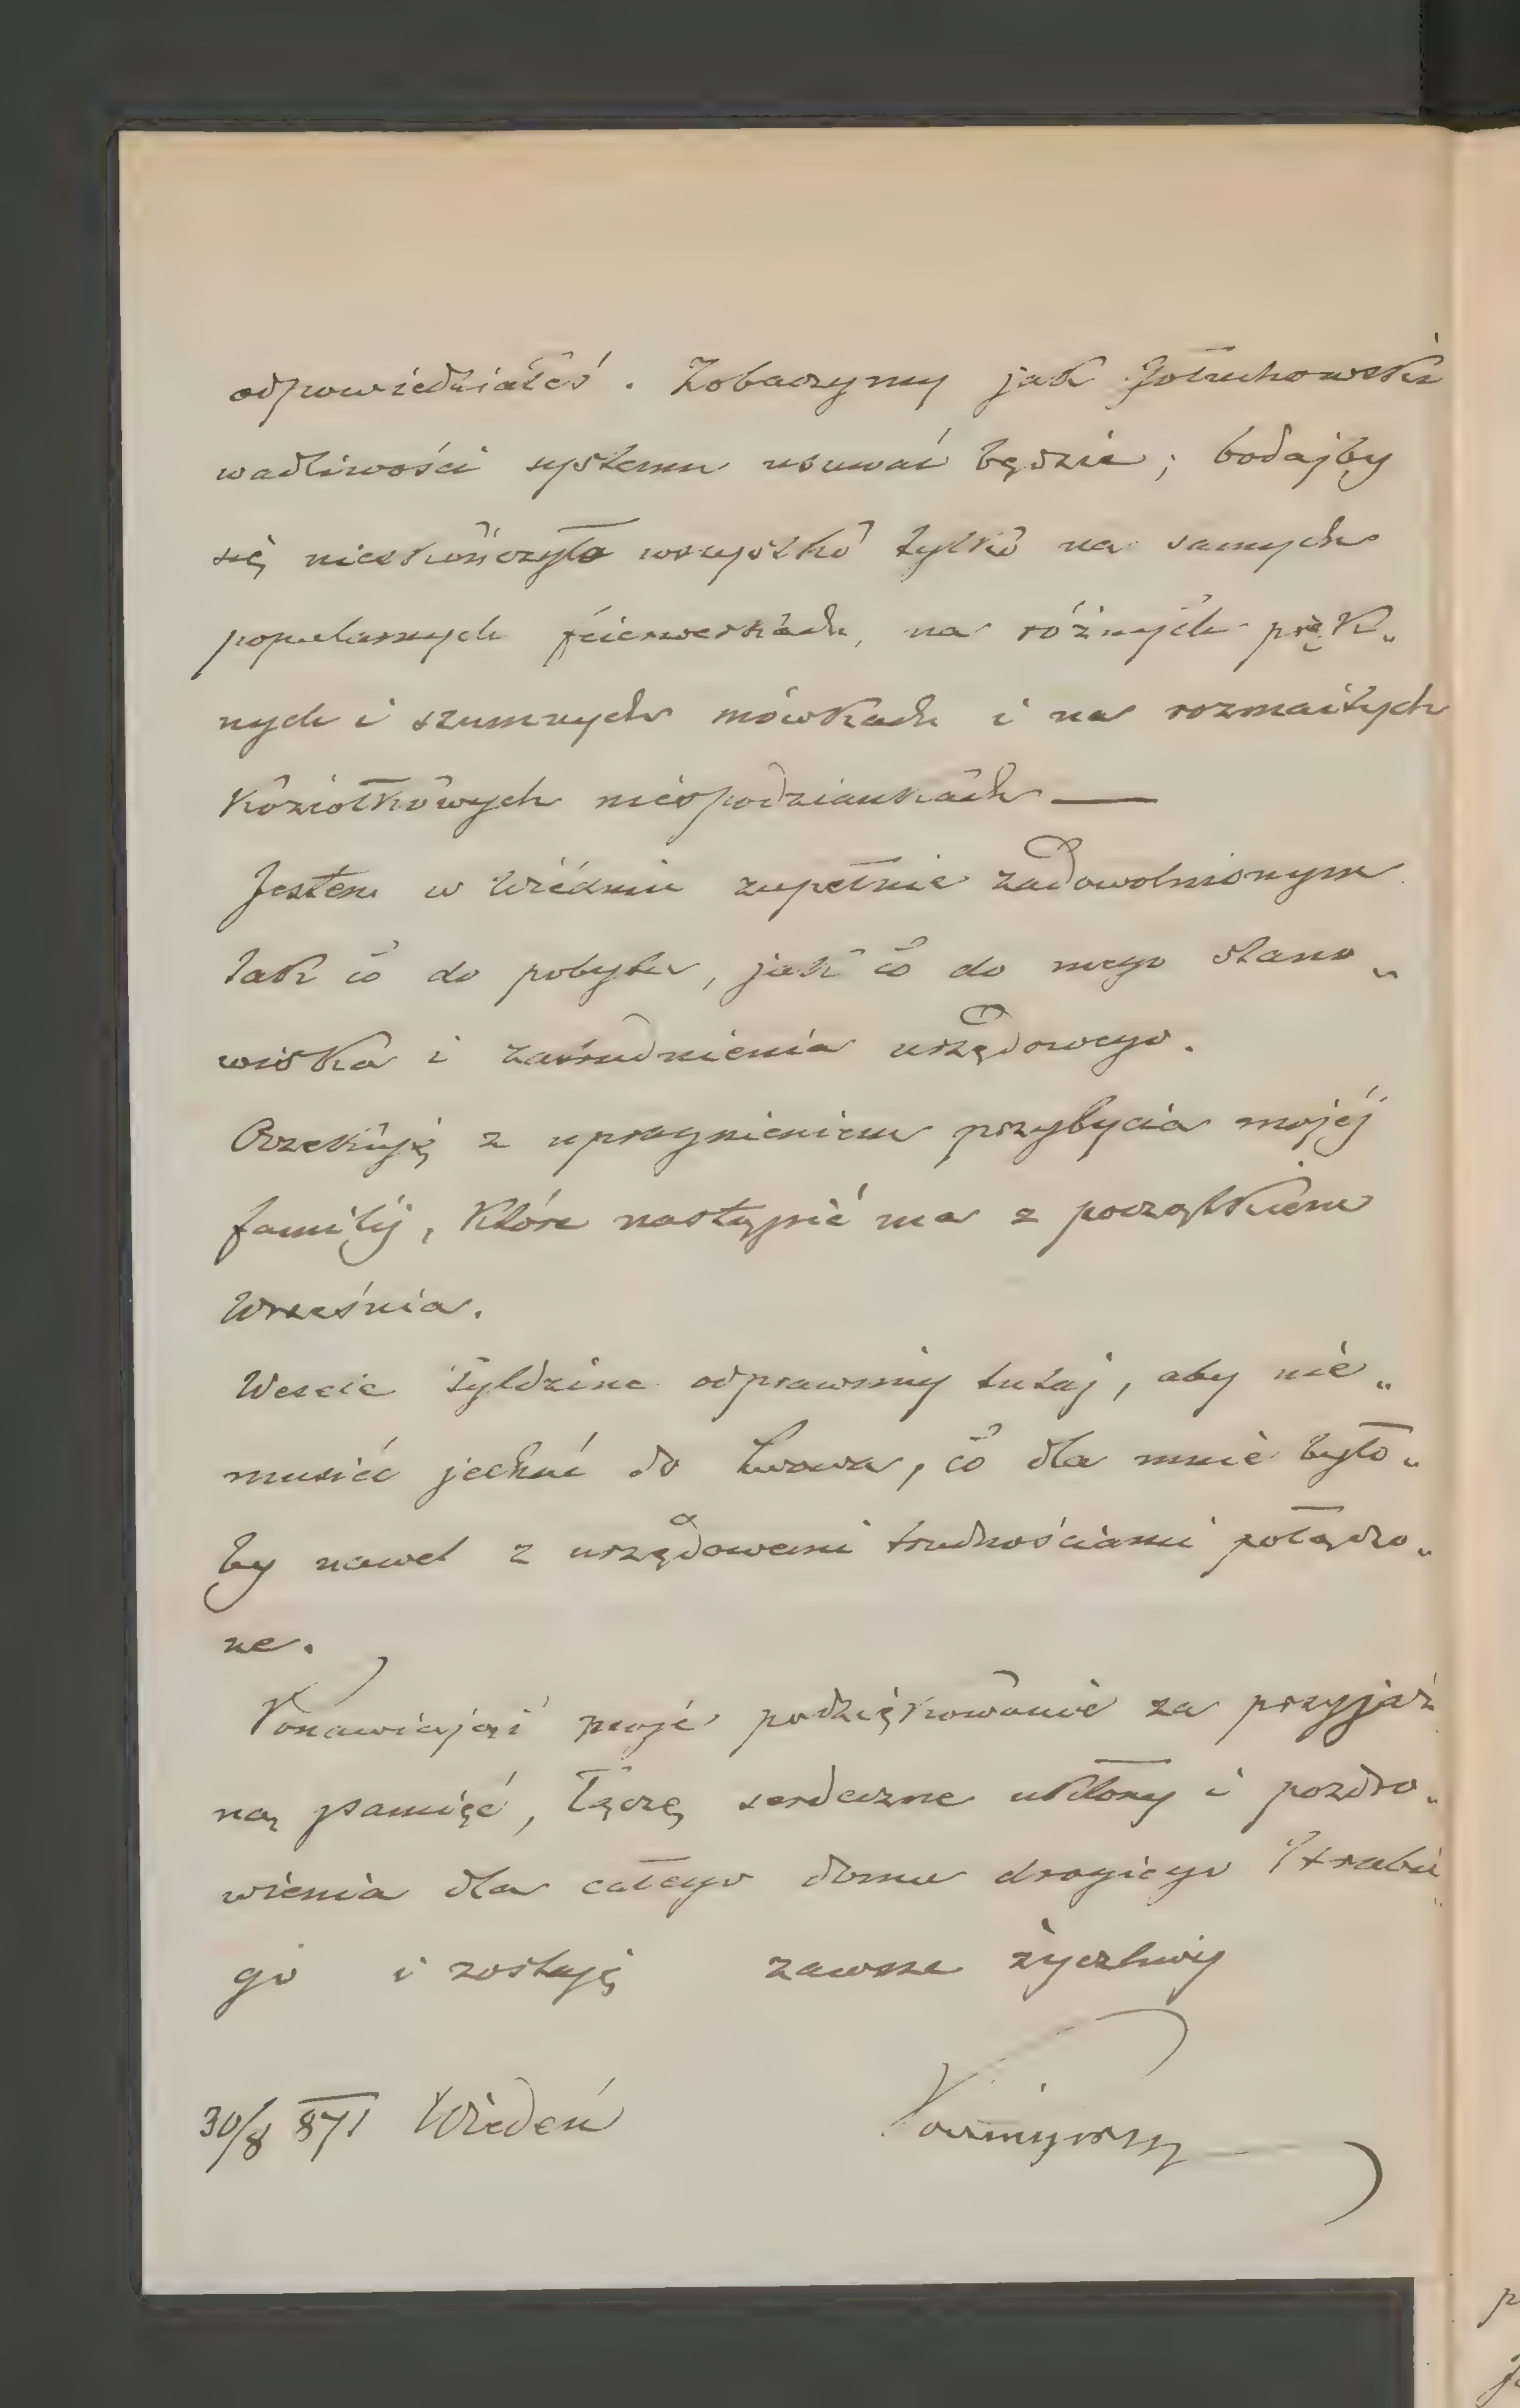 odpowiedziałeś. Zobaczymy jak Gołuchowski
wadliwości systemu usuwać będzie; bodajby
się nieskończyło wszystko tylko na samych
popularnych feierwerkach, na różnych pięk„
nych i szumnych mówkach i na rozmaitych
koziołkowych niespodziankach —
Jestem w Wiédniu zupełnie zadowolnionym
tak co do pobytu, jak co do mego stano„
wiska i zatrudnienia urzędowego.
Oczekuję z upragnieniem przybycia mojéj
familij, które nastąpić ma z początkiem
Września.
Wesele Tyldzine odprawimy tutaj, aby nie„
musieć jechać do Lwowa, co dla mnie było„
by nawet z urzędowemi trudnościami połączo„
ne.
Ponawiając moje podziękowanie za przyjaź
ną pamięć, łączę serdeczne ukłony i pozdro„
wienia dla całego domu drogiego Hrabie„
go i zostaję zawsze życzliwy
30/8 871 Wiedeń